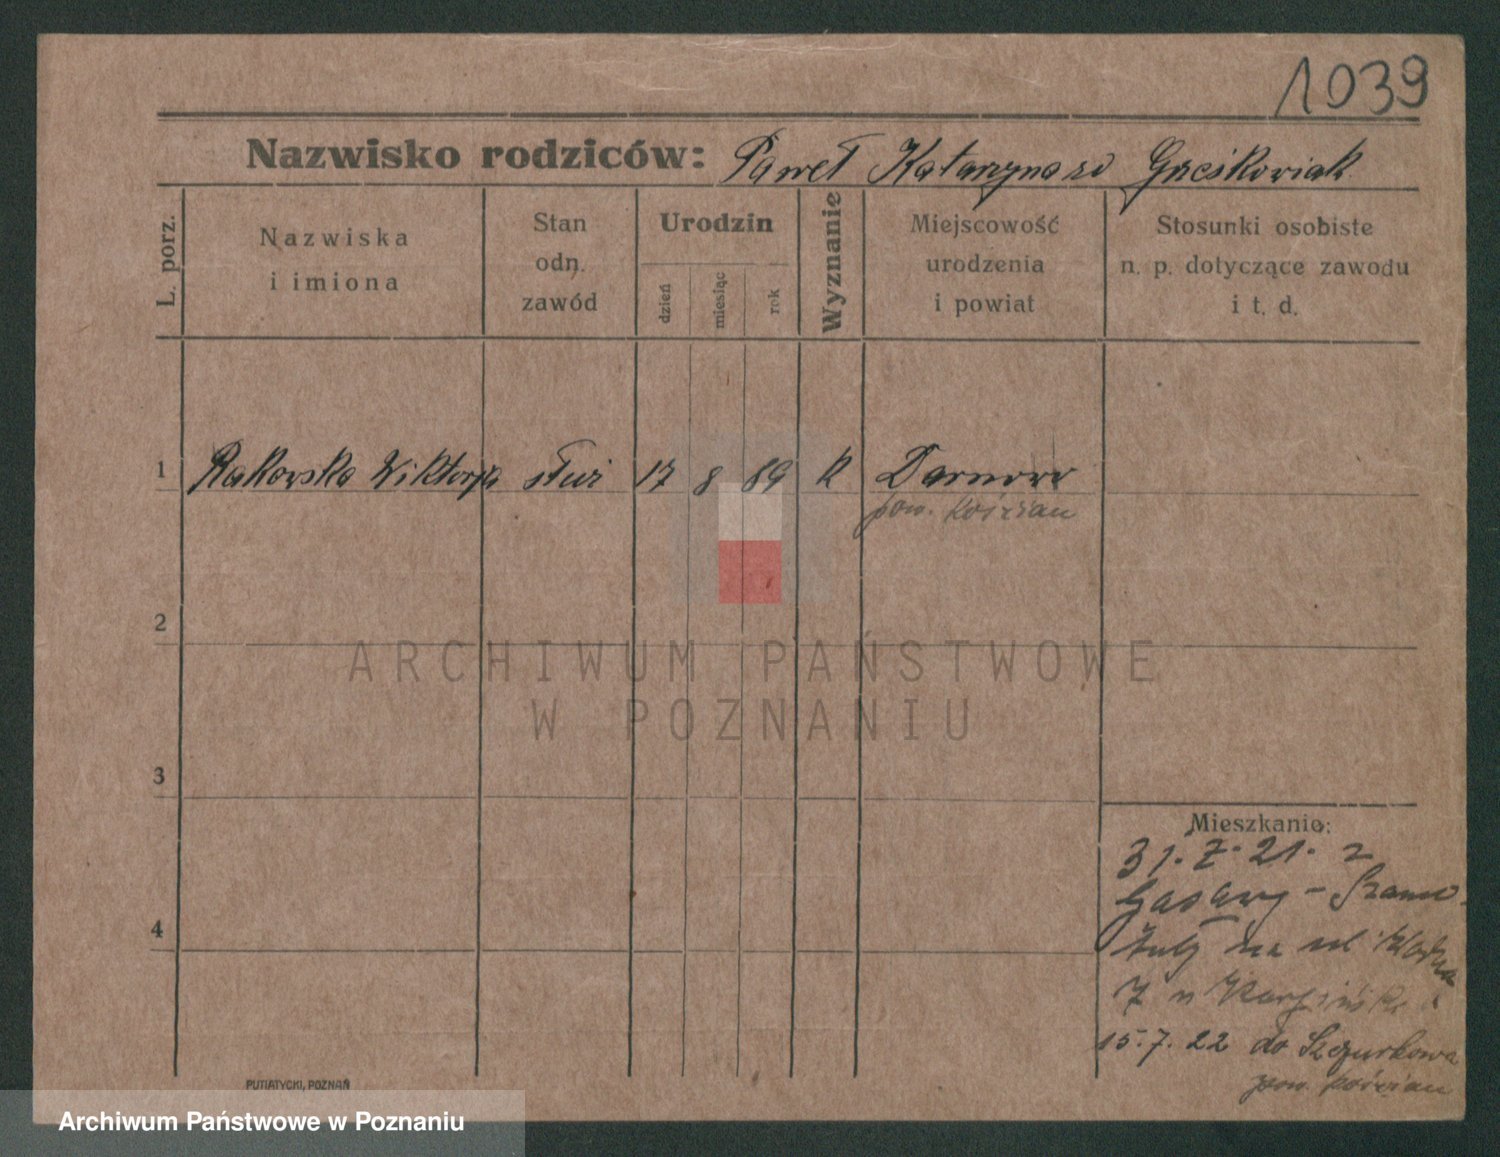 1039
Nazwisko rodziców: Paweł Katarzyna zd Grześkowiak
L. porz.
Nazwiska
i imiona
Stan
odn.
zawód
Urodzin
dzień
miesiąc
rok
Wyznanie
Miejscowość
urodzenia
i powiat
Stosunki osobiste
n. p. dotyczące zawodu
i t. d.
1 Rakowska Wiktorja służ 17 8 89 k Darnowo
pow. Kościan
2
ARCHIWUM PAŃSTWOWE
W POZNANIU
3
Mieszkanie:
31.7.21. z
Gąsawy - Szamo
4
na ul
7 u
15.7.22 do
pow. Kościan
PUTIATYCKI, POZNAŃ
Archiwum Państwowe w Poznaniu